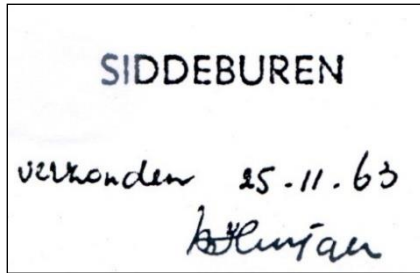 SIDDEBUREN
verzonden 25.11.63